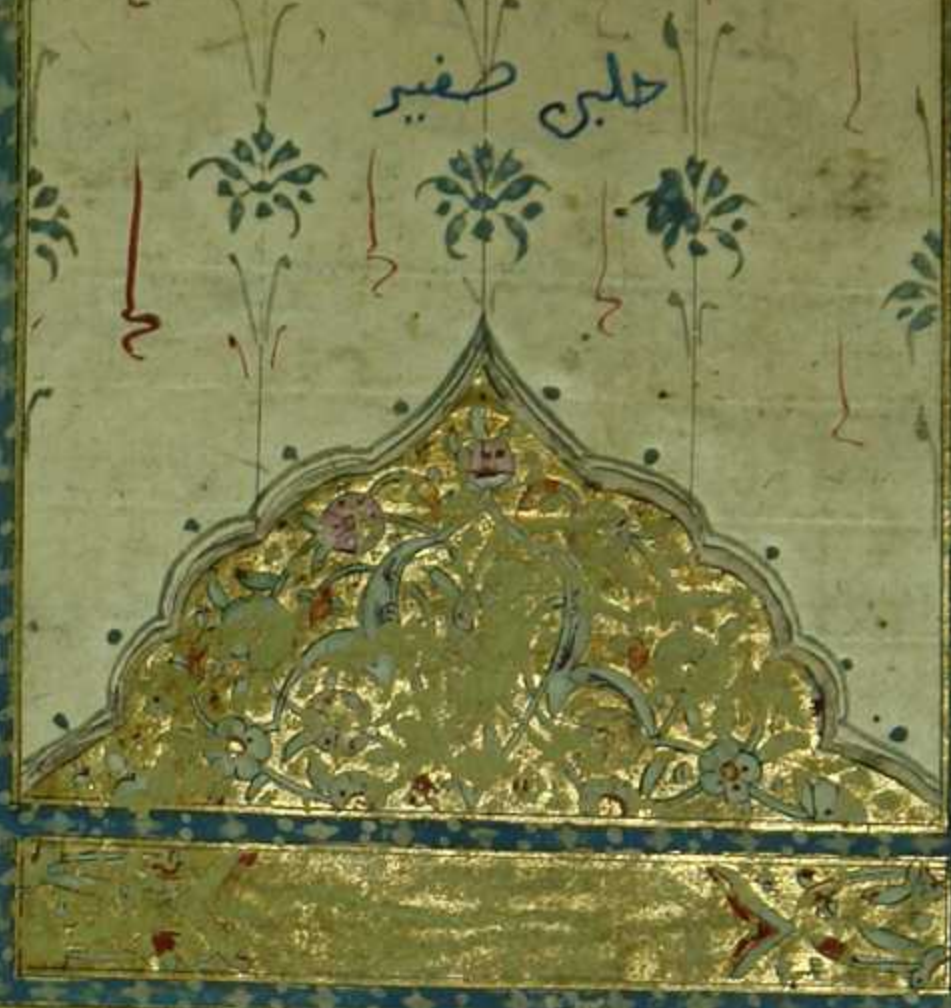 حلبى صغير